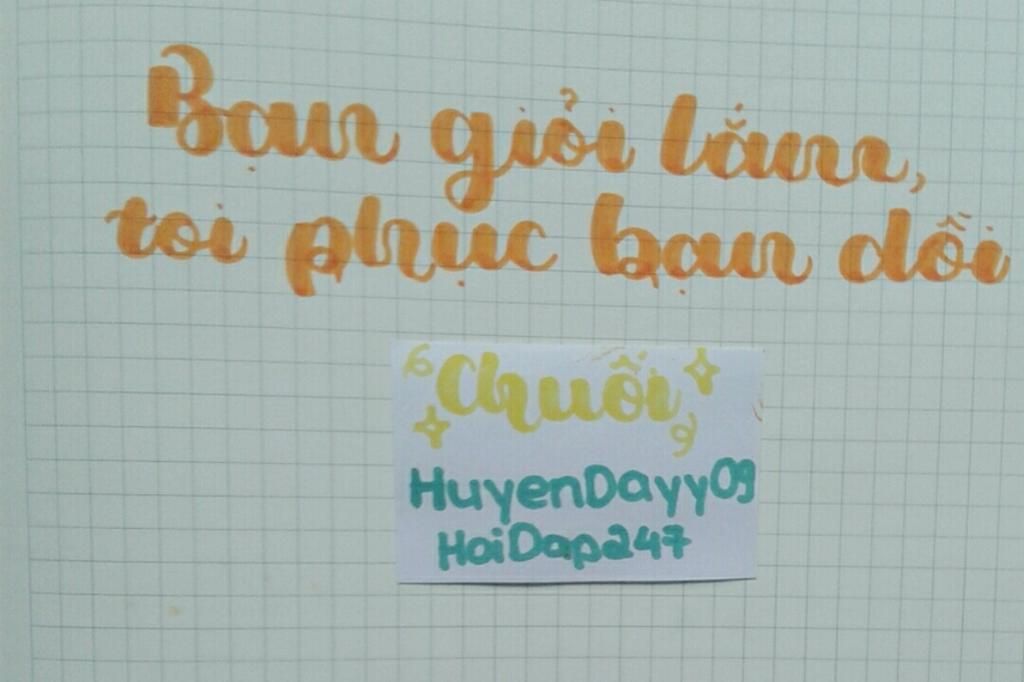 Bạn giỏi lắm,
toi phục bạn dồi
Chuối
HuyenDayy09
HoiDap247